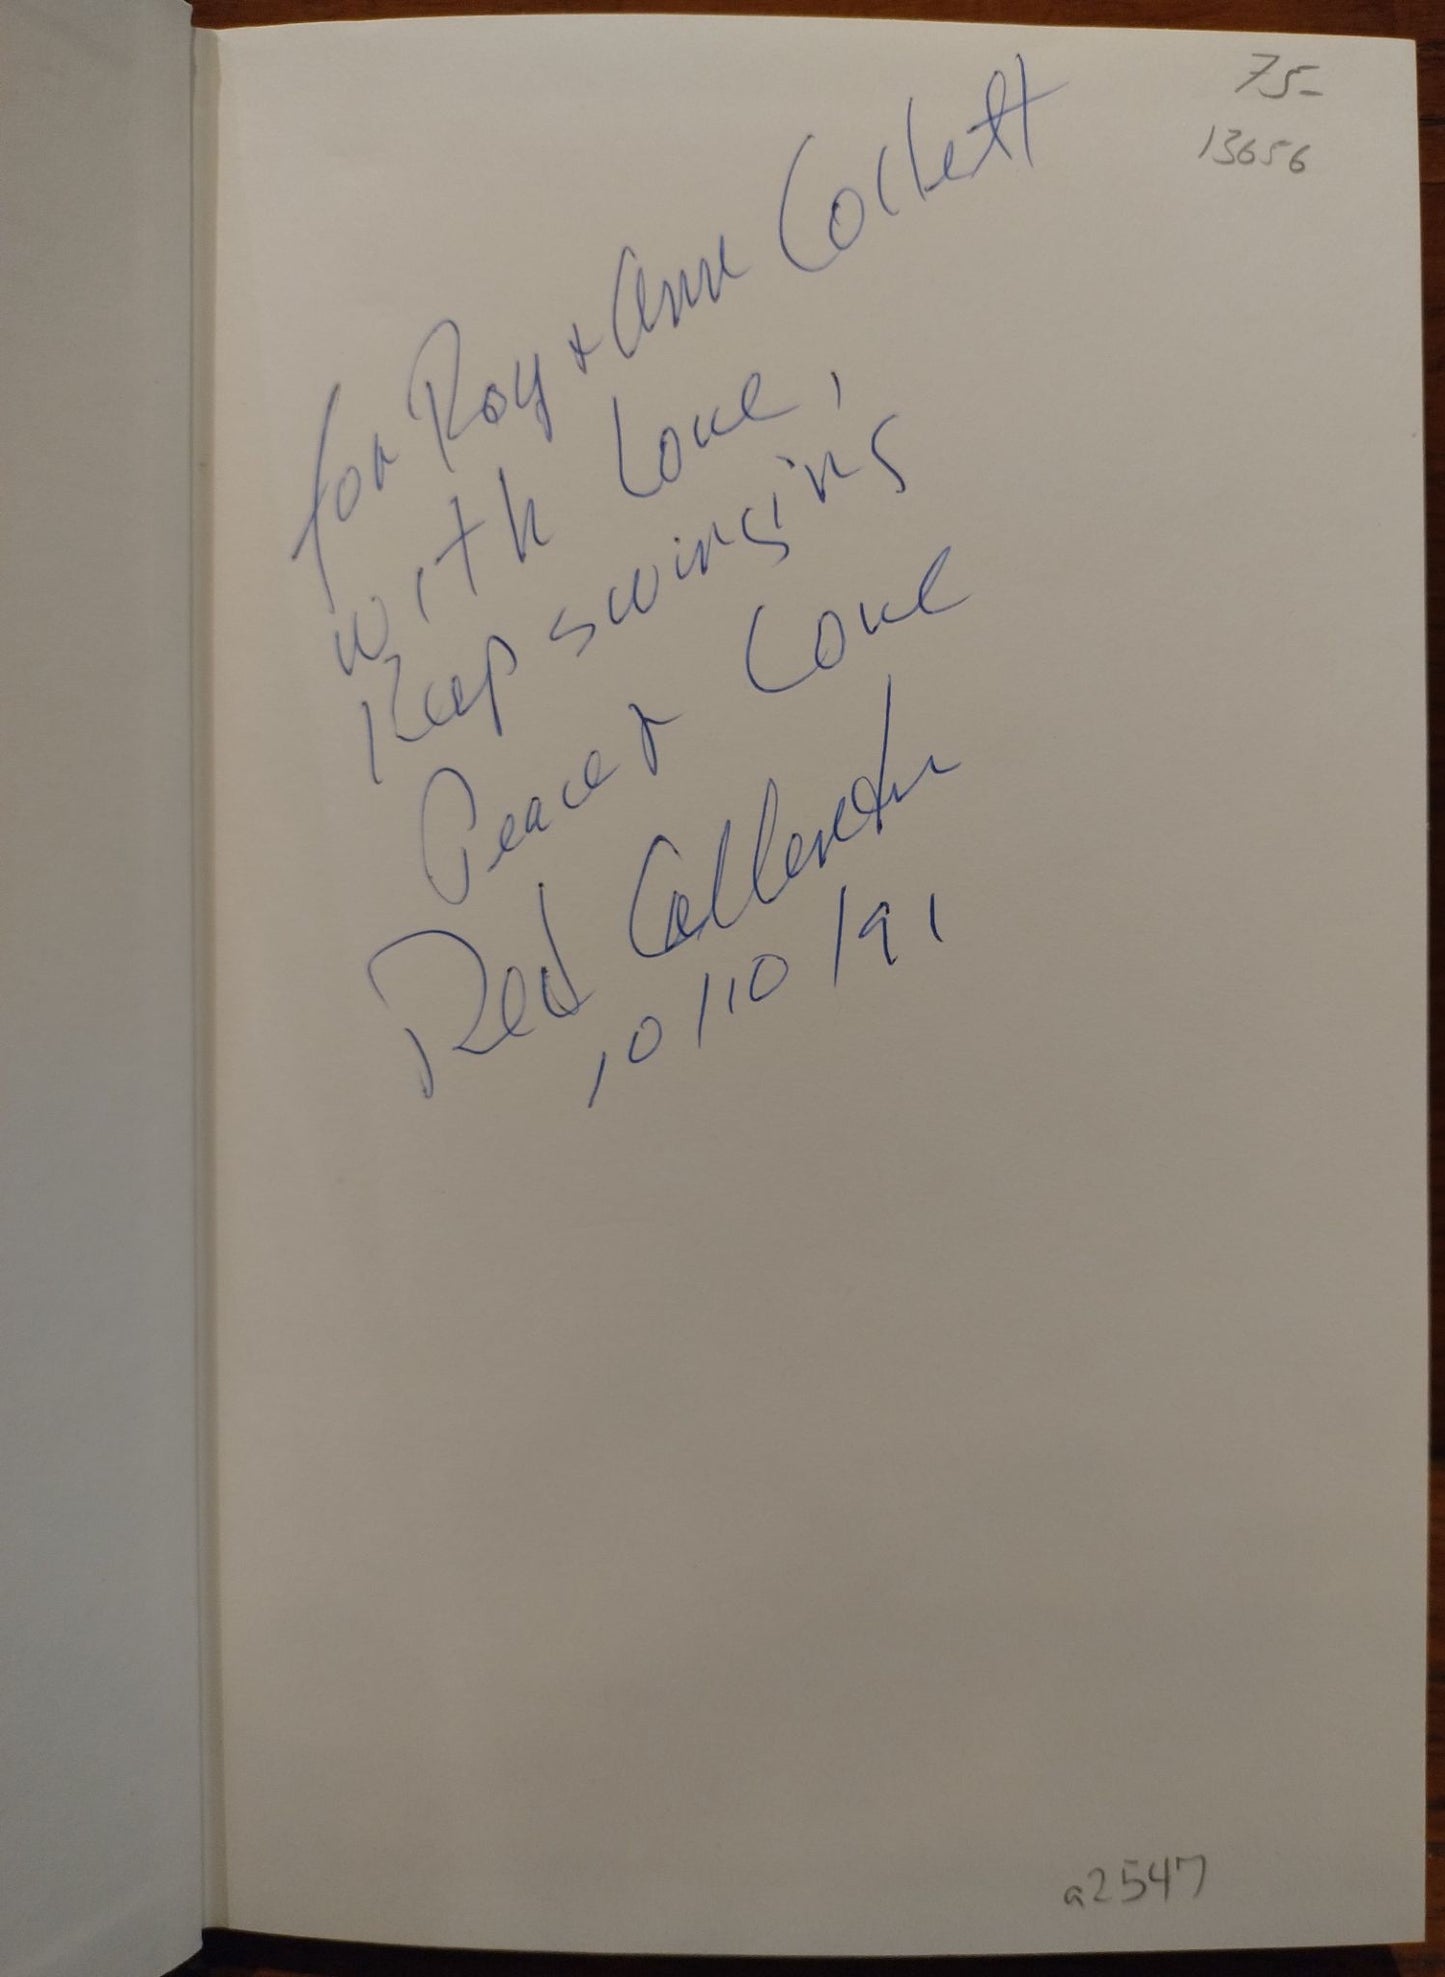 75-
13656
for Roy + Ann Collett
with Love,
Keep swinging
Peace & Love
Red Callender
10/10/91
a2547